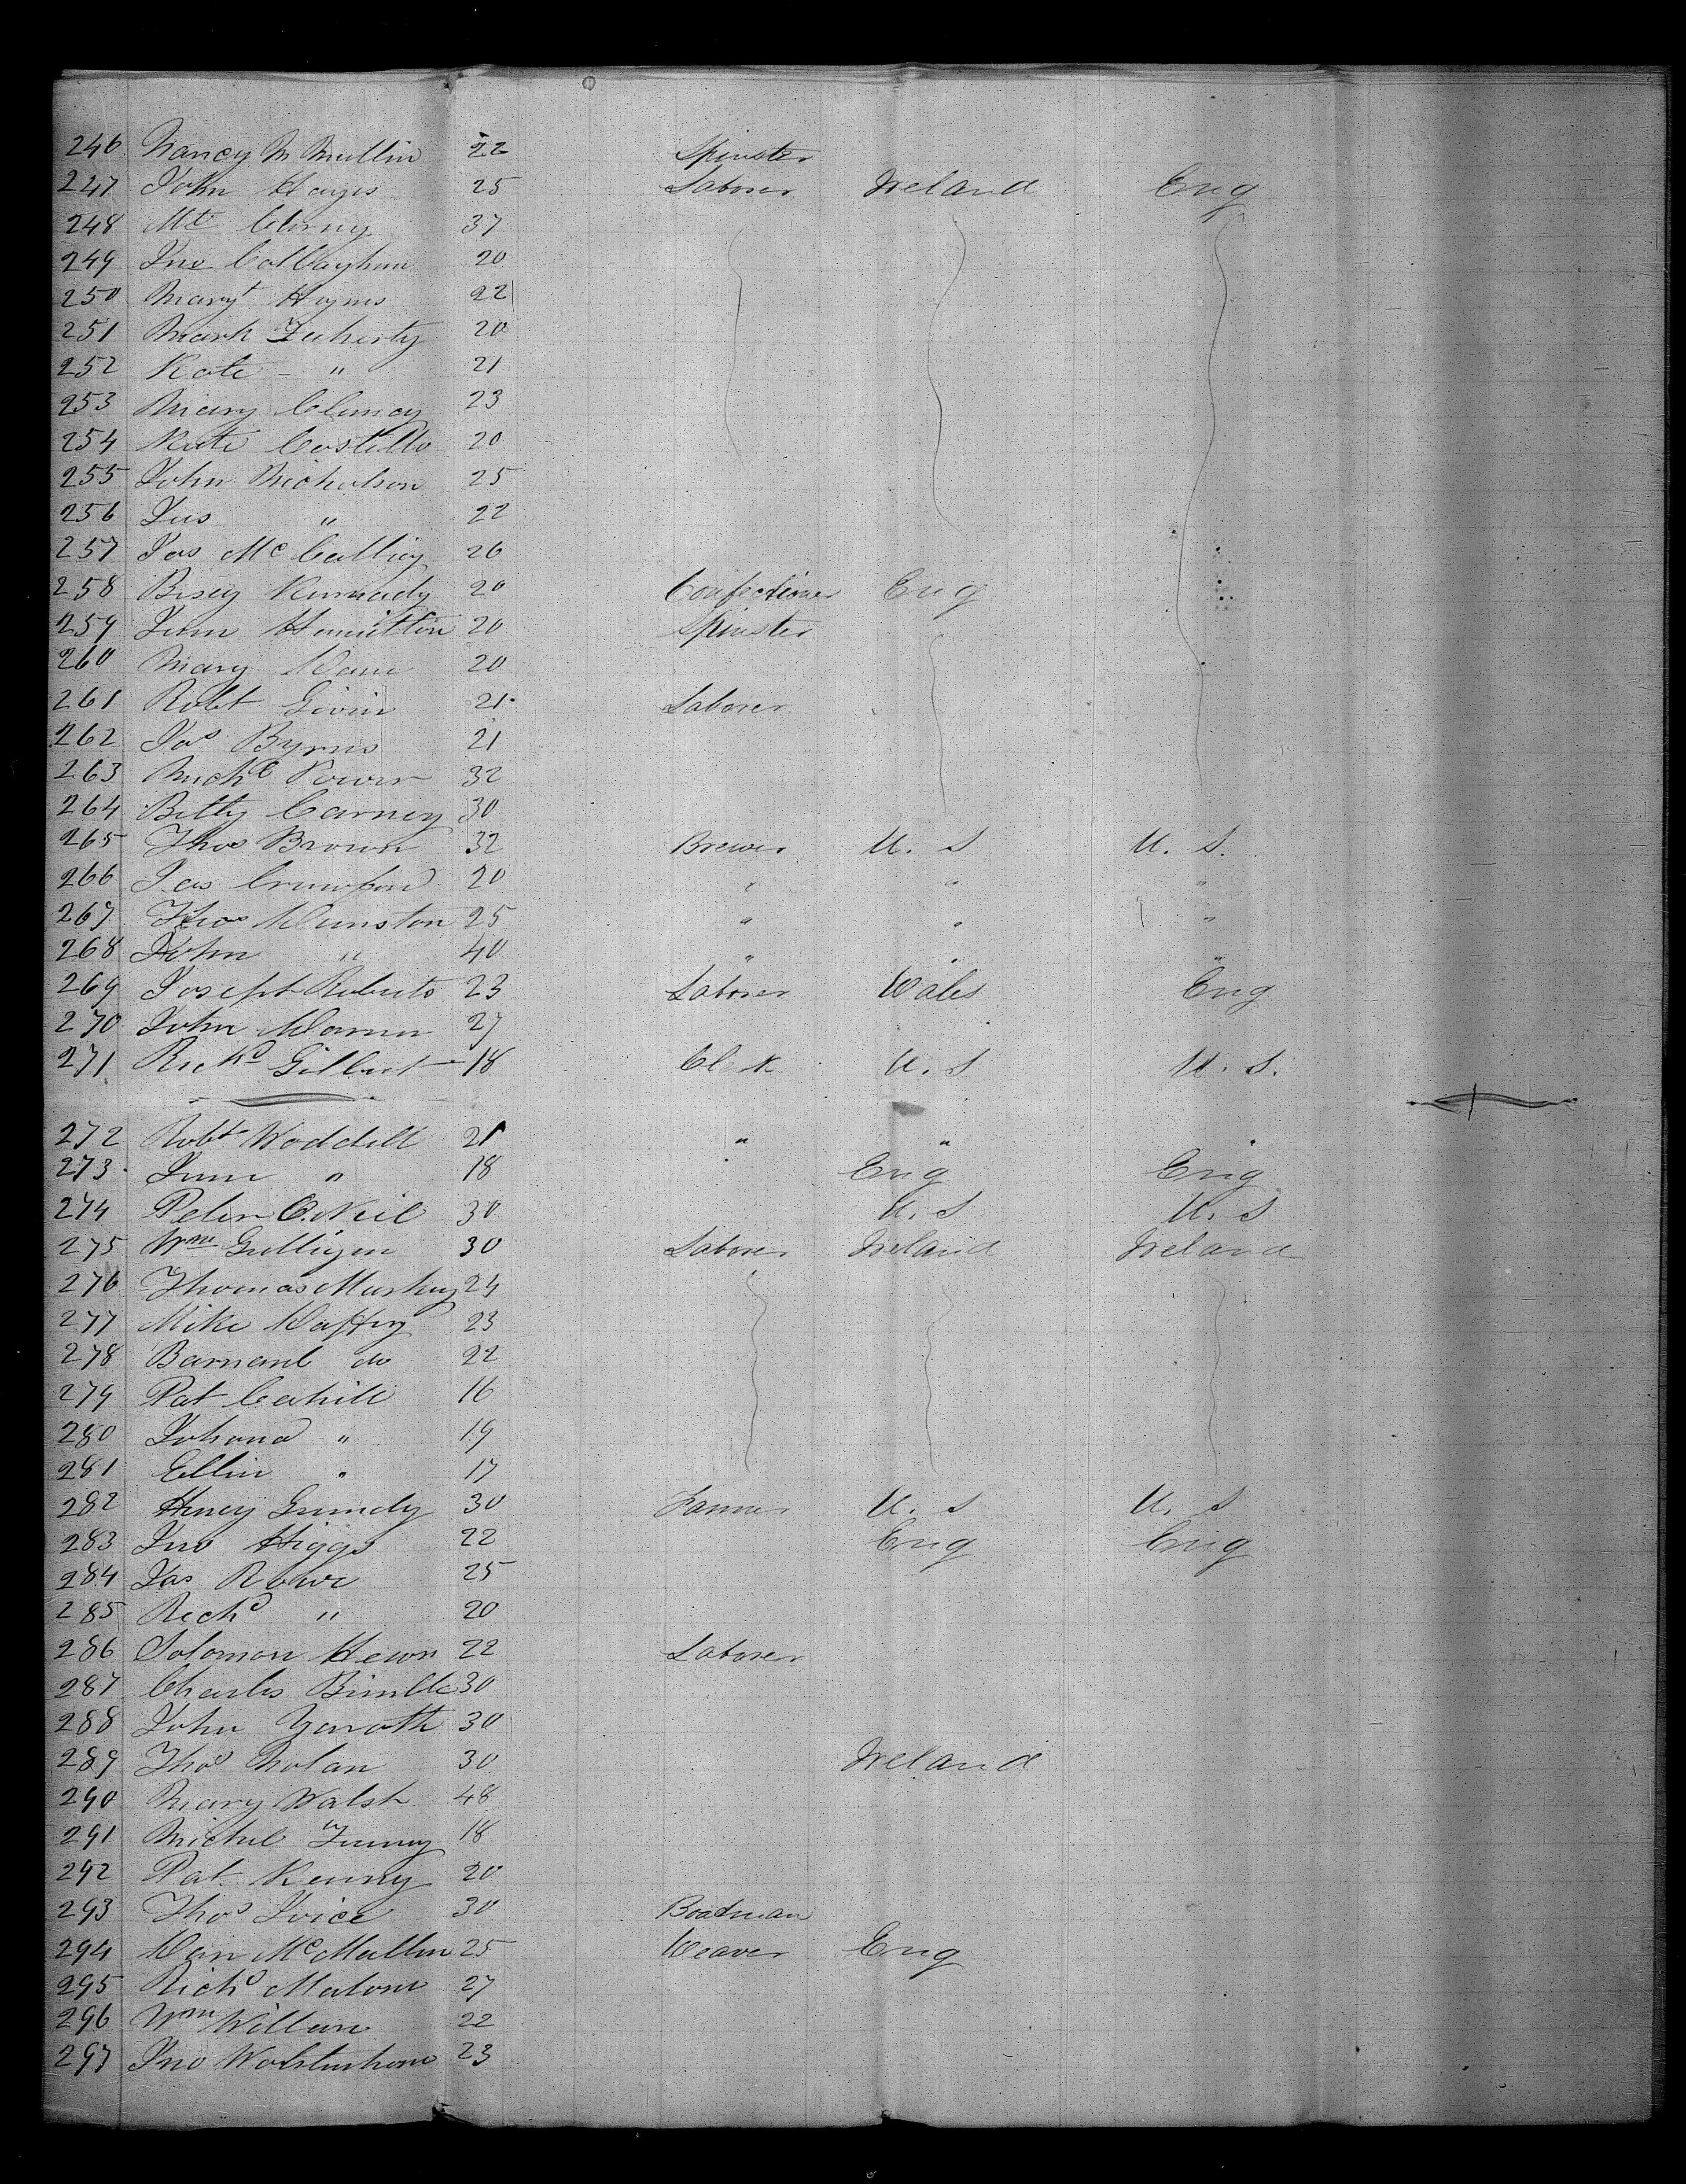 246 Nancy M Mullin 22 Spinster
247 John Hayes 25 Laborer Ireland Eng
248 37
249 Jno Callaghan 20
250 Margt Hynes 22
251 Mark Faherty 20
252 Kate - " 21
253 Mary Clancy 23
254 Kate Costello 20
255 John Nicholson 25
256 Jas " 22
257 Jas Mc 26
258 Kennedy 20 Confectioner Eng
259 Jane Hamilton 20 Spinster
260 Mary 20
261 Robt Givin 21 Laborer
262 Jas Byrns 21
263 Michl Power 32
264 Betty Carney 30
265 Thos Brown 32 Brewer U. S U. S.
266 Jas Crawford 20 " " "
267 Thos Dunston 25 " " "
268 John " 40 " " "
269 Joseph Roberts 23 Laborer Wales Eng
270 John 27
271 Richd Gilbert 18 Clerk U. S U. S.
272 Robt Waddell 21 " " "
273 Jane " 18 Eng Eng
274 Peter O.Neil 30 U. S U. S
275 Wm Gilligan 30 Laborer Ireland Ireland
276 Thomas Markey 24
277 Mike 23
278 Barnard do 22
279 Pat Cahill 16
280 Johana " 19
281 Ellin " 17
282 Henry Grundy 30 Farmer U. S U. S
283 Jno Higgs 22 Eng Eng
284 Jas Rowe 25
285 Richd " 20
286 Solomon 22 Laborer
287 Charles 30
288 John 30
289 Thos Nolan 30 Ireland
290 Mary Walsh 48
291 Michel 18
292 Pat Kenny 20
293 Thos Joice 30 Boatman
294 Dan McMullen 25 Weaver Eng
295 Richd Malone 27
296 Wm 22
297 Jno Wolstenhome 23